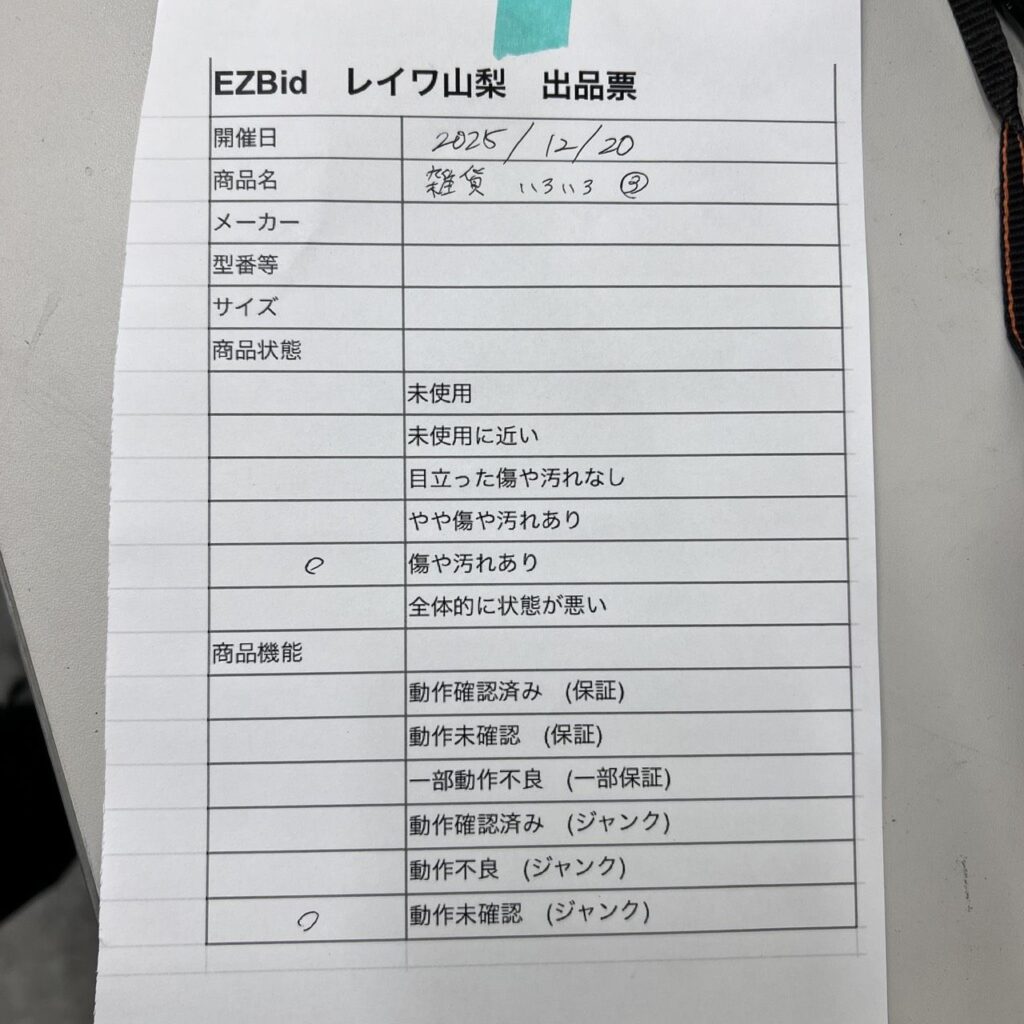 EZBid レイワ山梨 出品票
開催日 2025/12/20
商品名 雑貨 いろいろ ③
メーカー
型番等
サイズ
商品状態
未使用
未使用に近い
目立った傷や汚れなし
やや傷や汚れあり
○ 傷や汚れあり
全体的に状態が悪い
商品機能
動作確認済み (保証)
動作未確認 (保証)
一部動作不良 (一部保証)
動作確認済み (ジャンク)
動作不良 (ジャンク)
○ 動作未確認 (ジャンク)